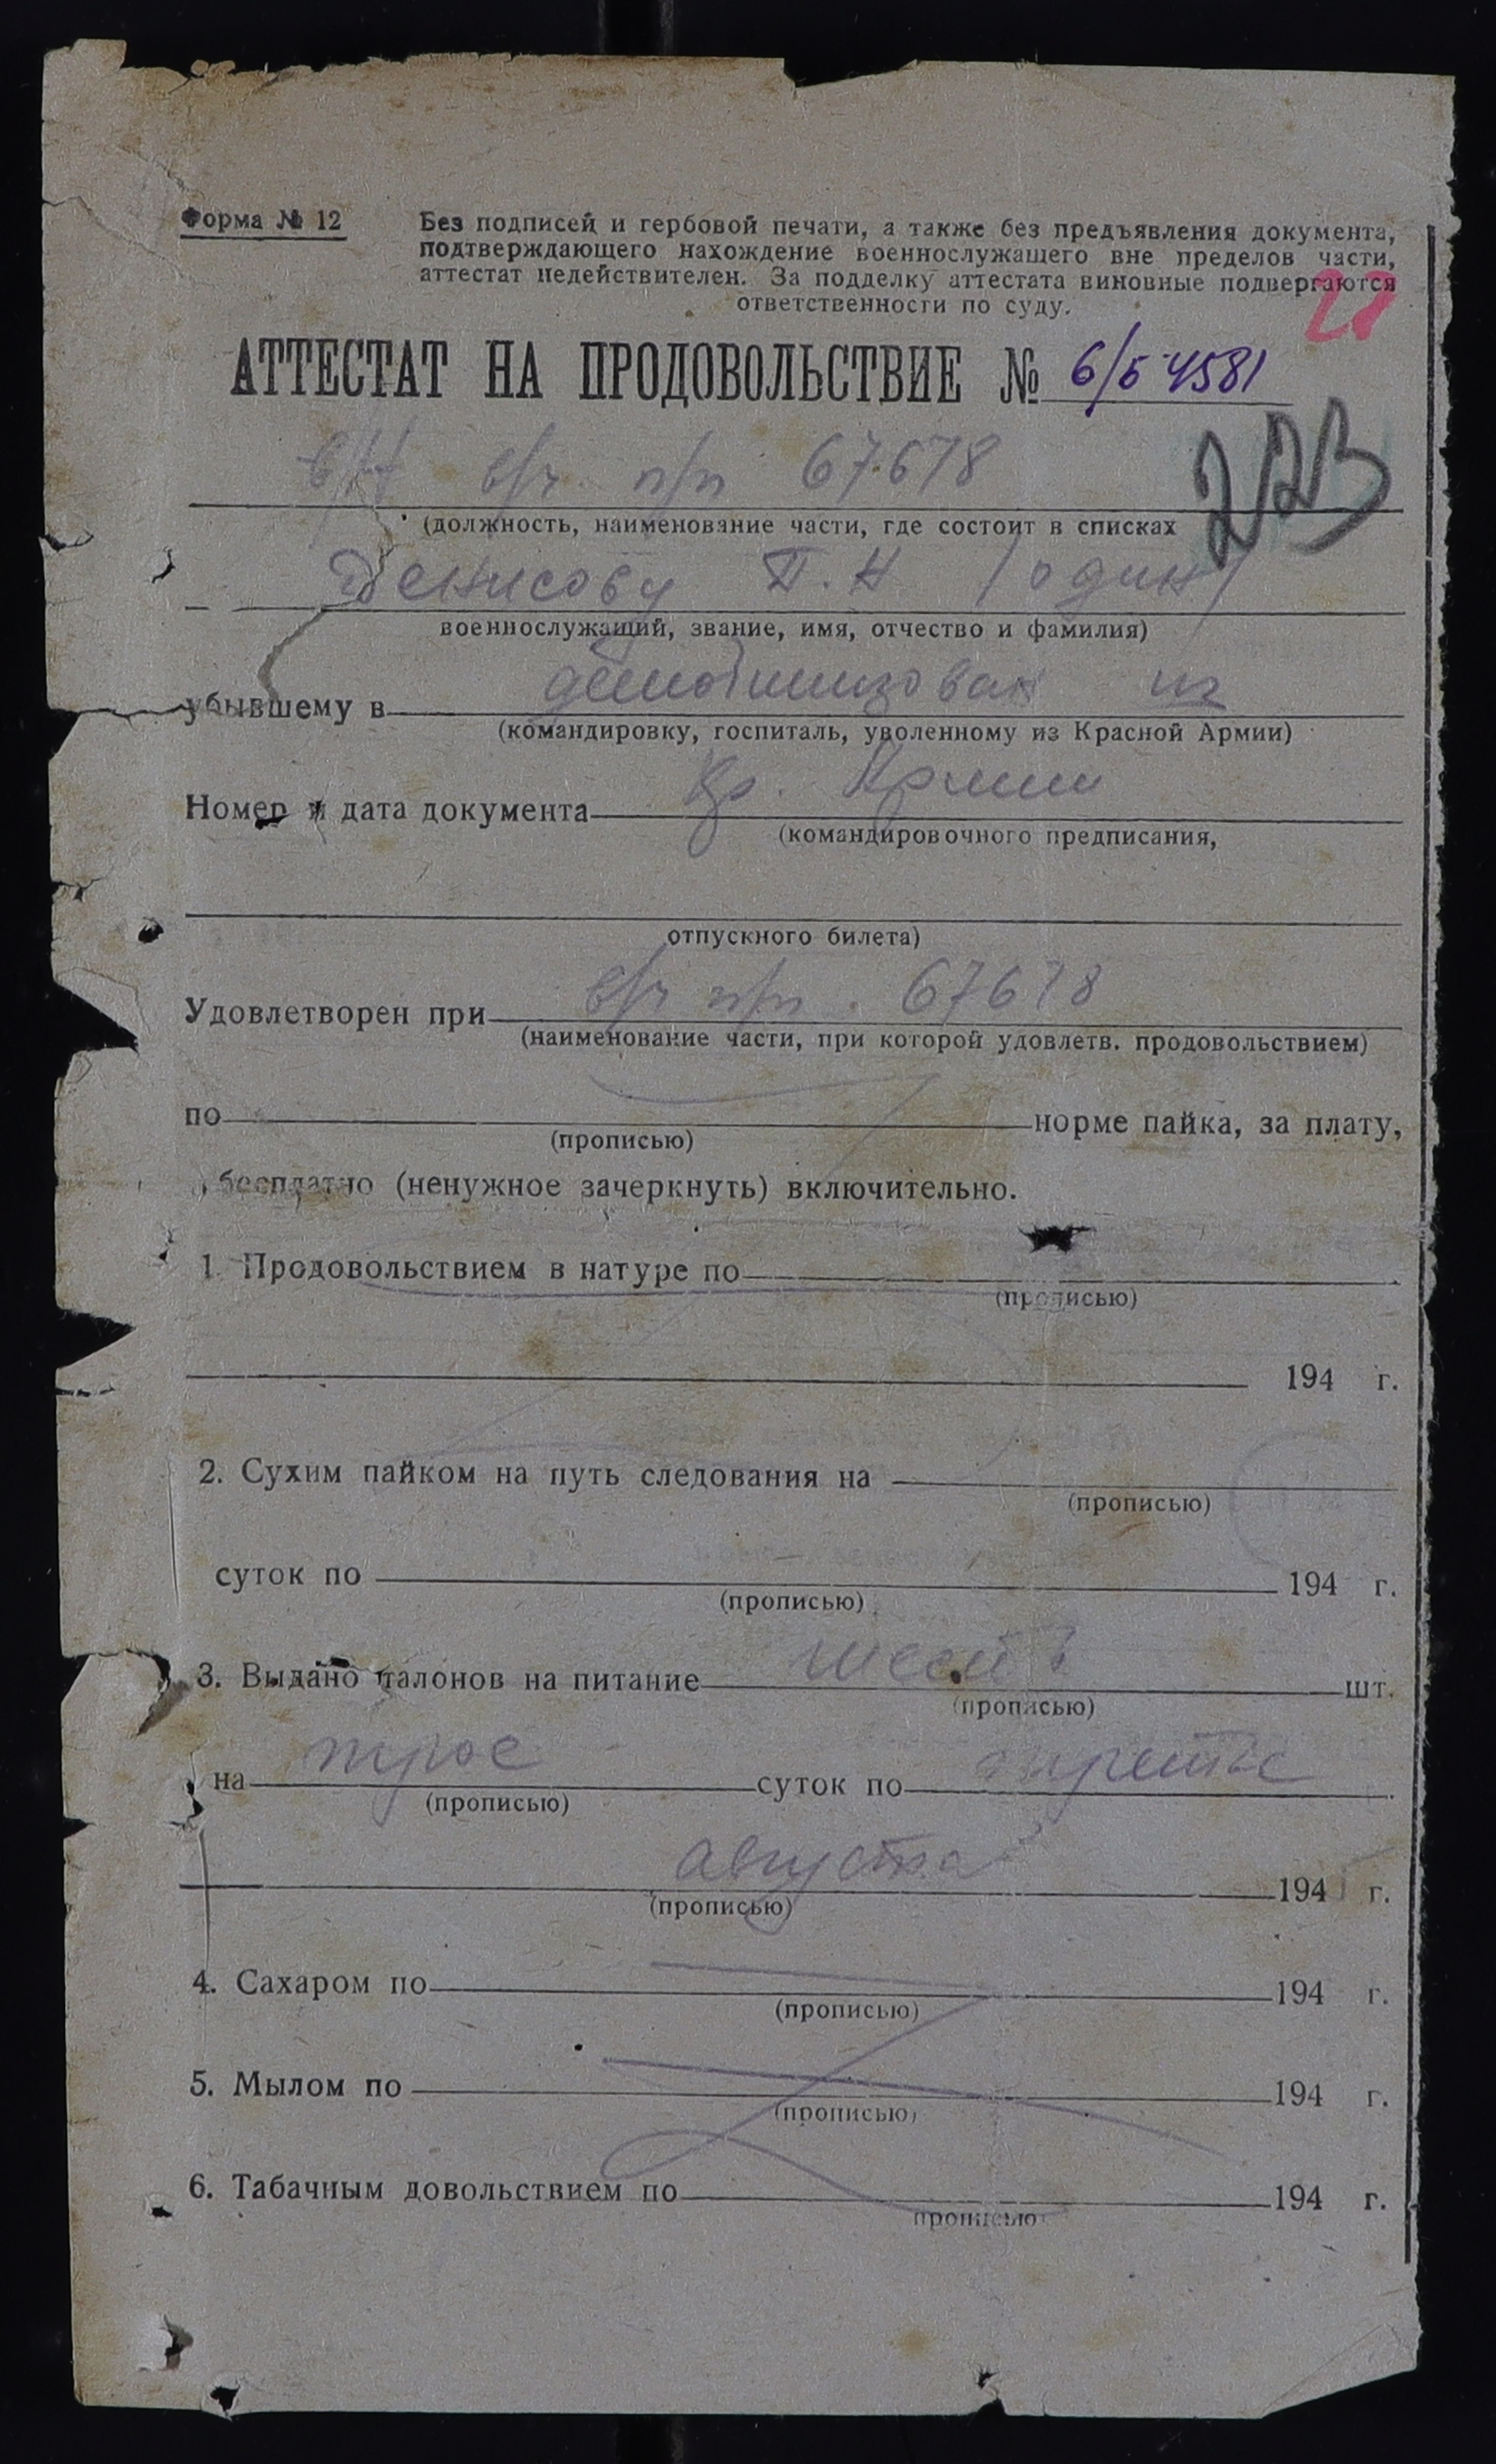 Форма № 12
Без подписей и гербовой печати, а также без предъявления документа,
подтверждающего нахождение военнослужащего вне пределов части,
аттестат недействителен. За подделку аттестата виновные подвергаются
ответственности по суду.
АТТЕСТАТ НА ПРОДОВОЛЬСТВИЕ № 6/б 4581
223
в/ч п/п 67678
(должность, наименование части, где состоит в списках
Денисову П. Н /один/
военнослужащий, звание, имя, отчество и фамилия)
убывшему в демобилизован из
(командировку, госпиталь, уволенному из Красной Армии)
Кр. Армии
Номер и дата документа
(командировочного предписания,
отпускного билета)
Удовлетворен при в/ч п/п. 67678
(наименование части, при которой удовлетв. продовольствием)
по норме пайка, за плату,
(прописью)
бесплатно (ненужное зачеркнуть) включительно.
1. Продовольствием в натуре по
(прописью)
194 г.
2. Сухим пайком на путь следования на
(прописью)
суток по 194 г.
(прописью)
3. Выдано талонов на питание шесть шт.
(прописью)
на трое суток по третье
(прописью)
августа 194 г.
(прописью)
4. Сахаром по 194 г.
(прописью)
5. Мылом по 194 г.
(прописью)
6. Табачным довольствием по 194 г.
прописью